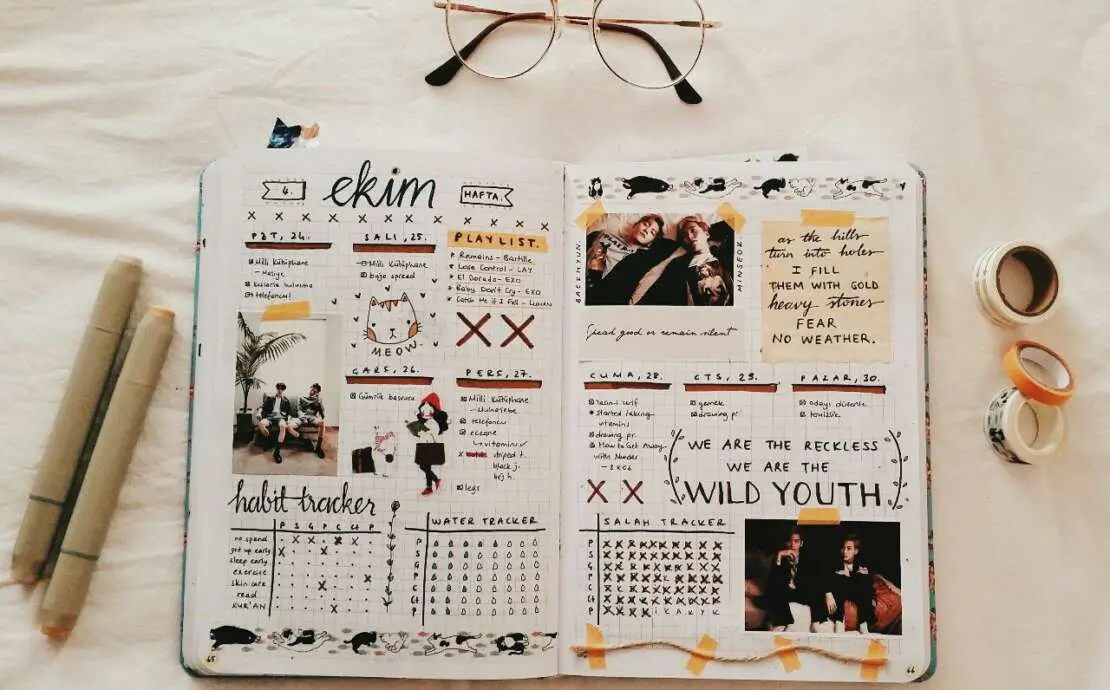 4.
ekim
HAFTA.
PZT, 24.
Milli Kütüphane
telefoncu!
SALI, 25.
Milli Kütüphane
bujo spread
MEOW.
PLAYLIST.
Remains - Bastille
Lose Control - LAY
El Dorado - EXO
Baby Don't Cry - EXO
Catch Me if I Fall -
ÇARŞ, 26.
PERŞ, 27.
Milli Kütüphane
telefoncu
eczane
vitamin
striped t.
black j.
habit tracker
P S Ç P C Ct P
no spend
get up early
sleep early
exercise
skin care
read
KUR'AN
WATER TRACKER
P
S
Ç
P
C
Ct
P
65
BAEKHYUN.
MINSEOK.
Read good or remain silent
as the hills
turn into holes
I FILL
THEM WITH GOLD
heavy stones
FEAR
NO WEATHER.
CUMA, 28.
started taking
vitamins
drawing pr.
How to Get Away
with Murder
CTS, 29.
yemek
drawing pr.
PAZAR, 30.
odayı düzenle
temizlik
WE ARE THE RECKLESS
WE ARE THE
WILD YOUTH
SALAH TRACKER
P
S
Ç
P
C
Ct
P
66